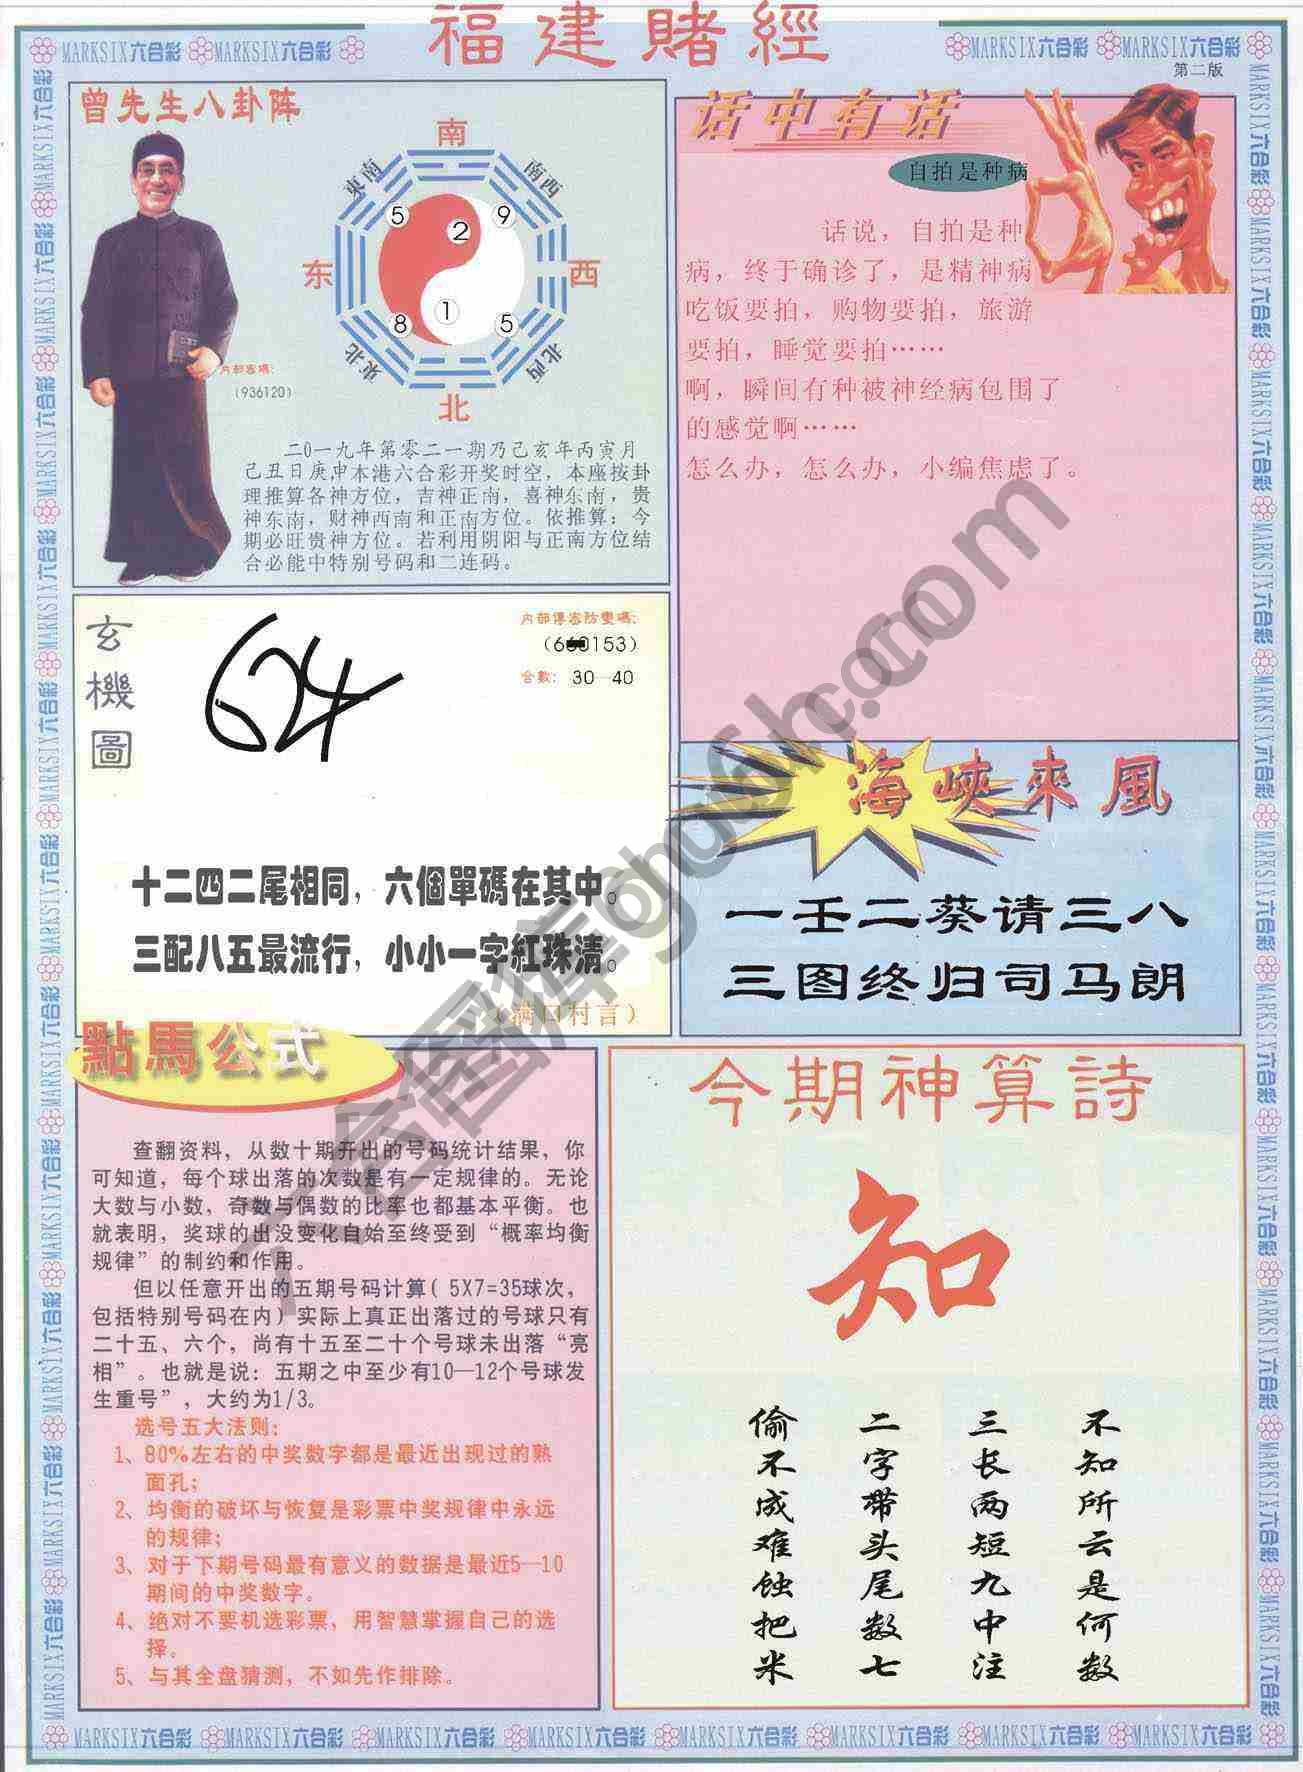 福建賭經
MARKSIX六合彩 MARKSIX六合彩
MARKSIX六合彩 MARKSIX六合彩
第二版
曾先生八卦阵
南
東南
南西
5
2
9
东
西
8
1
5
東北
北西
北
内部密碼:
(936120)
二0一九年第零二一期乃己亥年丙寅月
己丑日庚申本港六合彩开奖时空，本座按卦
理推算各神方位，吉神正南，喜神东南，贵
神东南，财神西南和正南方位。依推算：今
期必旺贵神方位。若利用阴阳与正南方位结
合必能中特别号码和二连码。
话中有话
自拍是种病
话说，自拍是种
病，终于确诊了，是精神病
吃饭要拍，购物要拍，旅游
要拍，睡觉要拍……
啊，瞬间有种被神经病包围了
的感觉啊……
怎么办，怎么办，小编焦虑了。
玄機圖
624
内部傳密防變碼:
153)
合數: 30—40
十二四二尾相同，六個單碼在其中。
三配八五最流行，小小一字紅珠清。
(满口村言)
海峽來風
一壬二葵请三八
三图终归司马朗
點馬公式
查翻资料，从数十期开出的号码统计结果，你
可知道，每个球出落的次数是有一定规律的。无论
大数与小数，奇数与偶数的比率也都基本平衡。也
就表明，奖球的出没变化自始至终受到“概率均衡
规律”的制约和作用。
但以任意开出的五期号码计算( 5X7=35球次，
包括特别号码在内)实际上真正出落过的号球只有
二十五、六个，尚有十五至二十个号球未出落“亮
相”。也就是说：五期之中至少有10—12个号球发
生重号”，大约为1/3。
选号五大法则:
1、80%左右的中奖数字都是最近出现过的熟
面孔;
2、均衡的破坏与恢复是彩票中奖规律中永远
的规律;
3、对于下期号码最有意义的数据是最近5—10
期间的中奖数字。
4、绝对不要机选彩票，用智慧掌握自己的选
择。
5、与其全盘猜测，不如先作排除。
今期神算詩
知
不知所云是何数
三长两短九中注
二字带头尾数七
偷不成难蚀把米
MARKSIX六合彩 MARKSIX六合彩 MARKSIX六合彩 MARKSIX六合彩 MARKSIX六合彩 MARKSIX六合彩 MARKSIX六合彩 MARKSIX六合彩